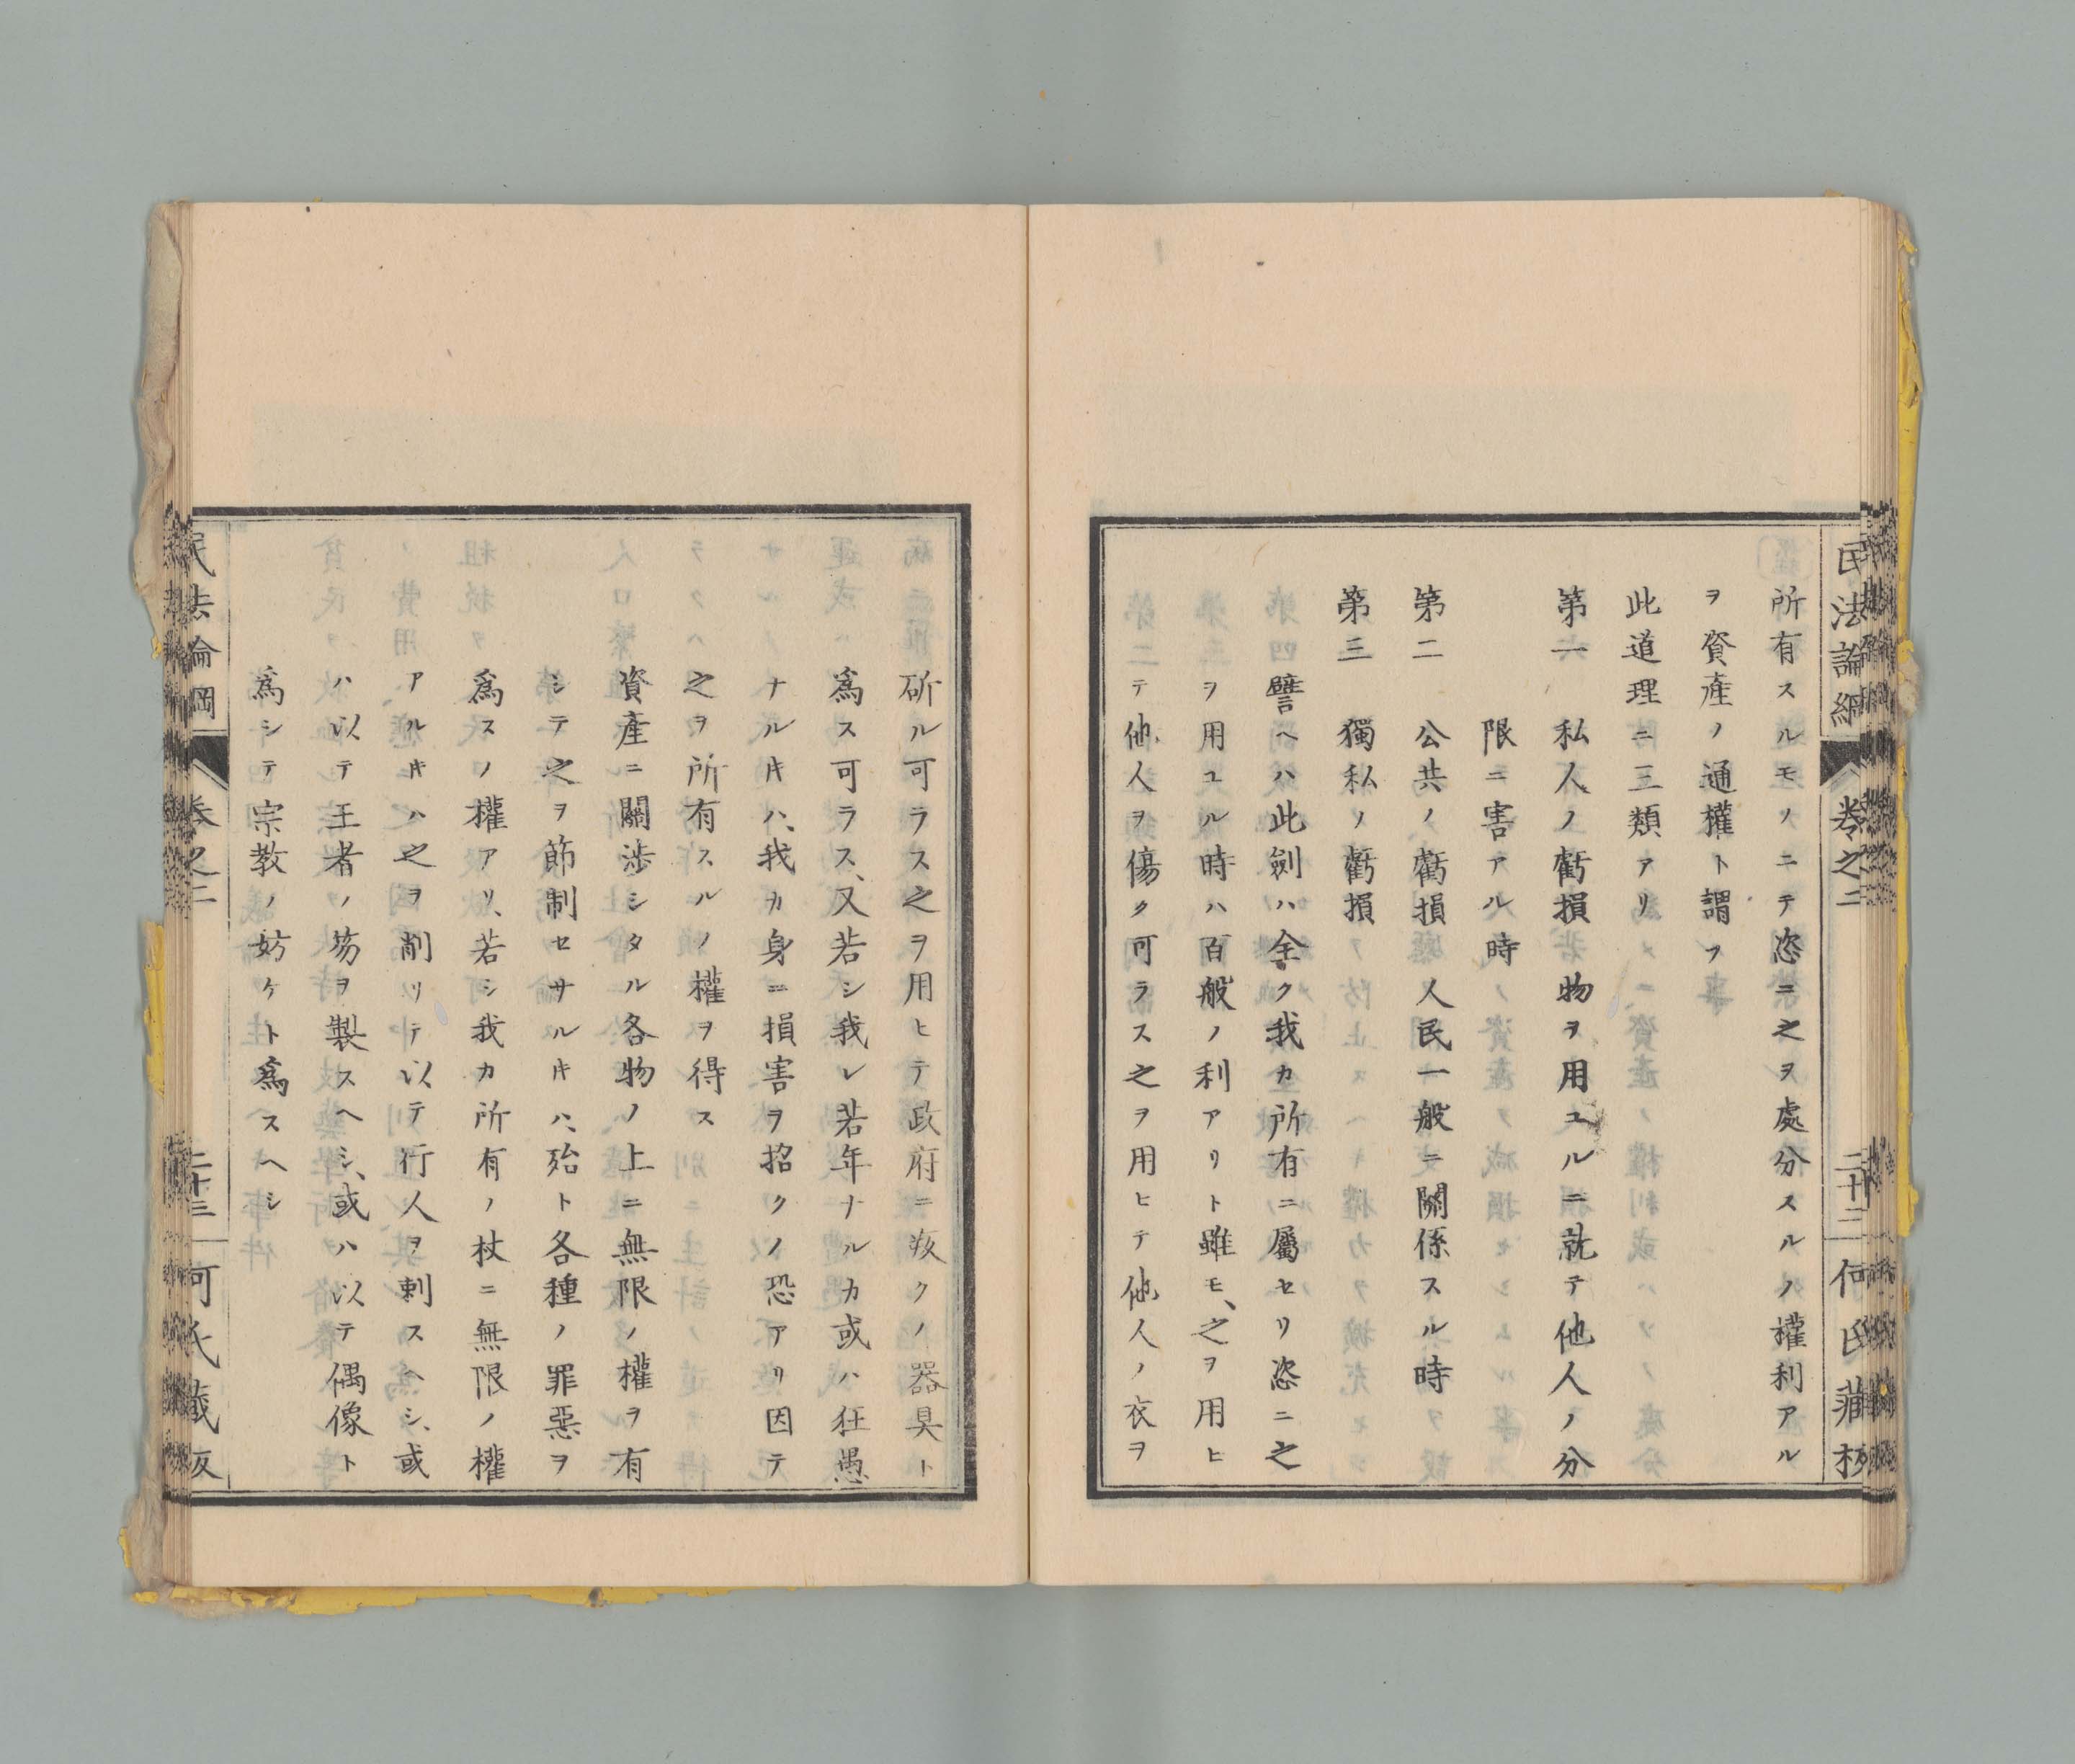 民法論綱 卷之二 二十二 何氏藏板
所有スルモノニテ恣ニ之ヲ處分スルノ權利アル
ヲ資產ノ通權ト謂フ
此道理ニ三類アリ
第一 私人ノ虧損 物ヲ用ユルニ就テ他人ノ分
限ニ害アル時
第二 公共ノ虧損 人民一般ニ關係スル時
第三 獨私ノ虧損
譬ヘハ此劍ハ全ク我カ所有ニ屬セリ恣ニ之
ヲ用ユル時ハ百般ノ利アリト雖モ、之ヲ用ヒ
テ他人ヲ傷ク可ラス之ヲ用ヒテ他人ノ衣ヲ
斫ル可ラス之ヲ用ヒテ政府ニ叛クノ器具ト
爲ス可ラス、又若シ我レ若年ナルカ或ハ狂愚
ナルキハ、我カ身ニ損害ヲ招クノ恐アリ因テ
之ヲ所有スルノ權ヲ得ス
資產ニ關涉シタル各物ノ上ニ無限ノ權ヲ有
シテ之ヲ節制セサルキハ、殆ト各種ノ罪惡ヲ
爲スノ權アリ、若シ我カ所有ノ杖ニ無限ノ權
アルキハ之ヲ削リテ以テ行人ヲ刺スヘシ、或
ハ以テ王者ノ笏ヲ製スヘシ、或ハ以テ偶像ト
爲シテ宗教ノ妨ケト爲スヘシ
民法論綱 卷之二 二十三 何氏藏板